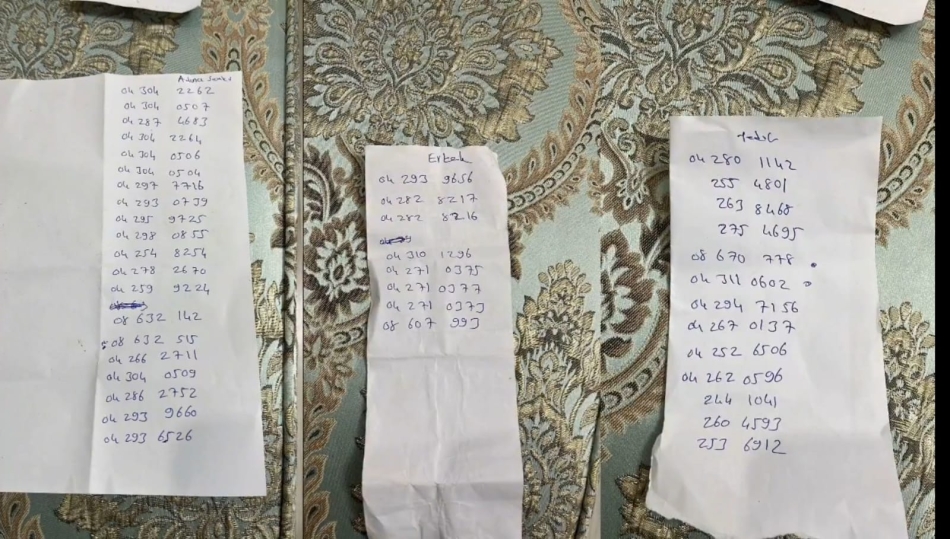 04 304 2262
04 304 0507
04 287 4683
04 304 2264
04 304 0506
04 304 0504
04 297 7716
04 293 0739
04 295 9725
04 298 0855
04 254 8254
04 278 2670
04 259 9224
08 632 142
08 632 515
04 266 2711
04 304 0509
04 286 2752
04 293 9660
04 293 6526
Erkek
04 293 9656
04 282 8217
04 282 8216
04 310 1296
04 271 0375
04 271 0377
04 271 0373
08 607 993
04 280 1142
255 4801
263 8468
275 4695
08 670 778
04 311 0602
04 294 7156
04 267 0137
04 252 6506
04 262 0596
244 1041
260 4593
253 6912